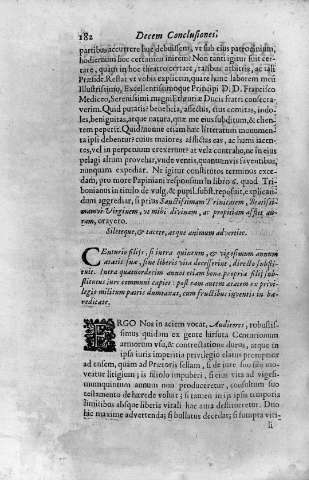 182 Decem Conclusiones.
partibus accurrere huc debuissem, vt sub eius patrocinium,
hodiernum hoc certamen inirem? Non tanti igitur sunt cer-
tare, quàm in hoc theatro certare, talibus arbitris, ac tali
Præside. Restat vt vobis explicem, quare hunc laborem meũ
Illustrissimo, Excellentissimoque Principi D. D. Francisco
Medico, Serenissimi magni Etruriæ Ducis fratri consecra-
verim. Quid putatis? beneficia, affectus, dotes eius comitas, indo-
les, benignitas, atque natura, quæ me eius subditum, & clien-
tem peperit. Quid? nonne etiam hæc litterarum monumen-
ta ipsi debentur? cuius maiores afflictas eas, ac humi iacen-
tes, vel in perpetuum erexerunt? at vela contraho, ne in eius
pelagi altum provehar, vnde ventis, quantumvis faventibus,
nunquam expediar. Ne igitur constitutos terminos exce-
dam, pro more Papiniani responsum in libro 6. quod Tri-
bonianus in titulo de vulg. & pupil. subst. reposuit, explican-
dum aggrediar, si prius Sanctissimam Trinitatem, Beatissi-
mamve Virginem, vt mihi divinam, ac propitiam afflet au-
ram, oravero.
Sileteque, & tacete, atque animum advertite.
CEnturio filijs, si intra quintum, & vigesimum annum
ætatis suæ, sine liberis vita decesserint, directo substi-
tuit. Intra quatuordecim annos etiam bona propria filij sub-
stitutus iure communi capiet: post eam autem ætatem ex privi-
legio militum patris dumtaxat, cum fructibus inventis in hæ-
reditate.
ERGO Nos in aciem vocat, Auditores, robustis-
simus quidam ex gente hirsuta Centurionum
armorum vsu, & contrectatione durus, atque in
ipsa iuris imperitia privilegio elatus promptior
ad ensem, quàm ad Prætoris sellam, si de iure suo sibi mo-
veatur litigium; is filiolo impuberi, si eius vita ad viges-
imumquintum annum non produceretur, consultum suo
testamento de hærede voluit; si tamen in ipsa temporis
limitibus absque liberis vitali hac aura destitueretur. Duo
hic maxime advertenda; si